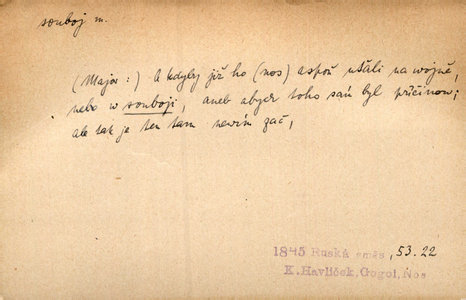 souboj m.
(Major:) A kdyby již ho (nos) aspoň uťali na wojně,
nebo w souboji, aneb abych toho sám byl příčinow;
ale tak je ten tam newím zač,
1845 Ruská směs, 53.22
K.Havlíček,Gogol,Nos